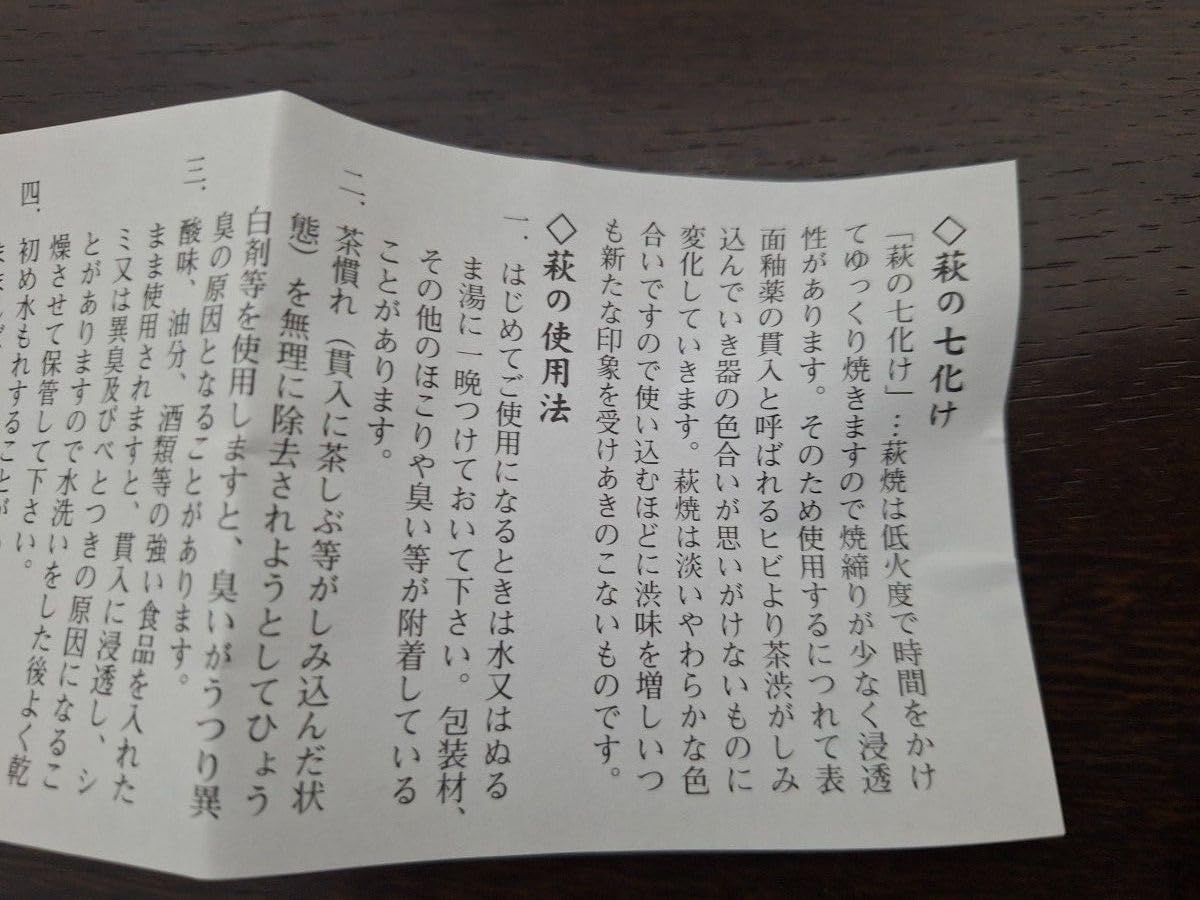 ◇萩の七化け
「萩の七化け」…萩焼は低火度で時間をかけ
てゆっくり焼きますので焼締りが少なく浸透
性があります。そのため使用するにつれて表
面釉薬の貫入と呼ばれるヒビより茶渋がしみ
込んでいき器の色合いが思いがけないものに
変化していきます。萩焼は淡いやわらかな色
合いですので使い込むほどに渋味を増しいつ
も新たな印象を受けあきのこないものです。
◇萩の使用法
一.はじめてご使用になるときは水又はぬる
ま湯に一晩つけておいて下さい。包装材、
その他のほこりや臭い等が附着している
ことがあります。
二.茶慣れ(貫入に茶しぶ等がしみ込んだ状
態)を無理に除去されようとしてひょう
白剤等を使用しますと、臭いがうつり異
臭の原因となることがあります。
三.酸味、油分、酒類等の強い食品を入れた
まま使用されますと、貫入に浸透し、シ
ミ又は異臭及びべとつきの原因になるこ
とがありますので水洗いをした後よく乾
燥させて保管して下さい。
四.初め水もれすることが